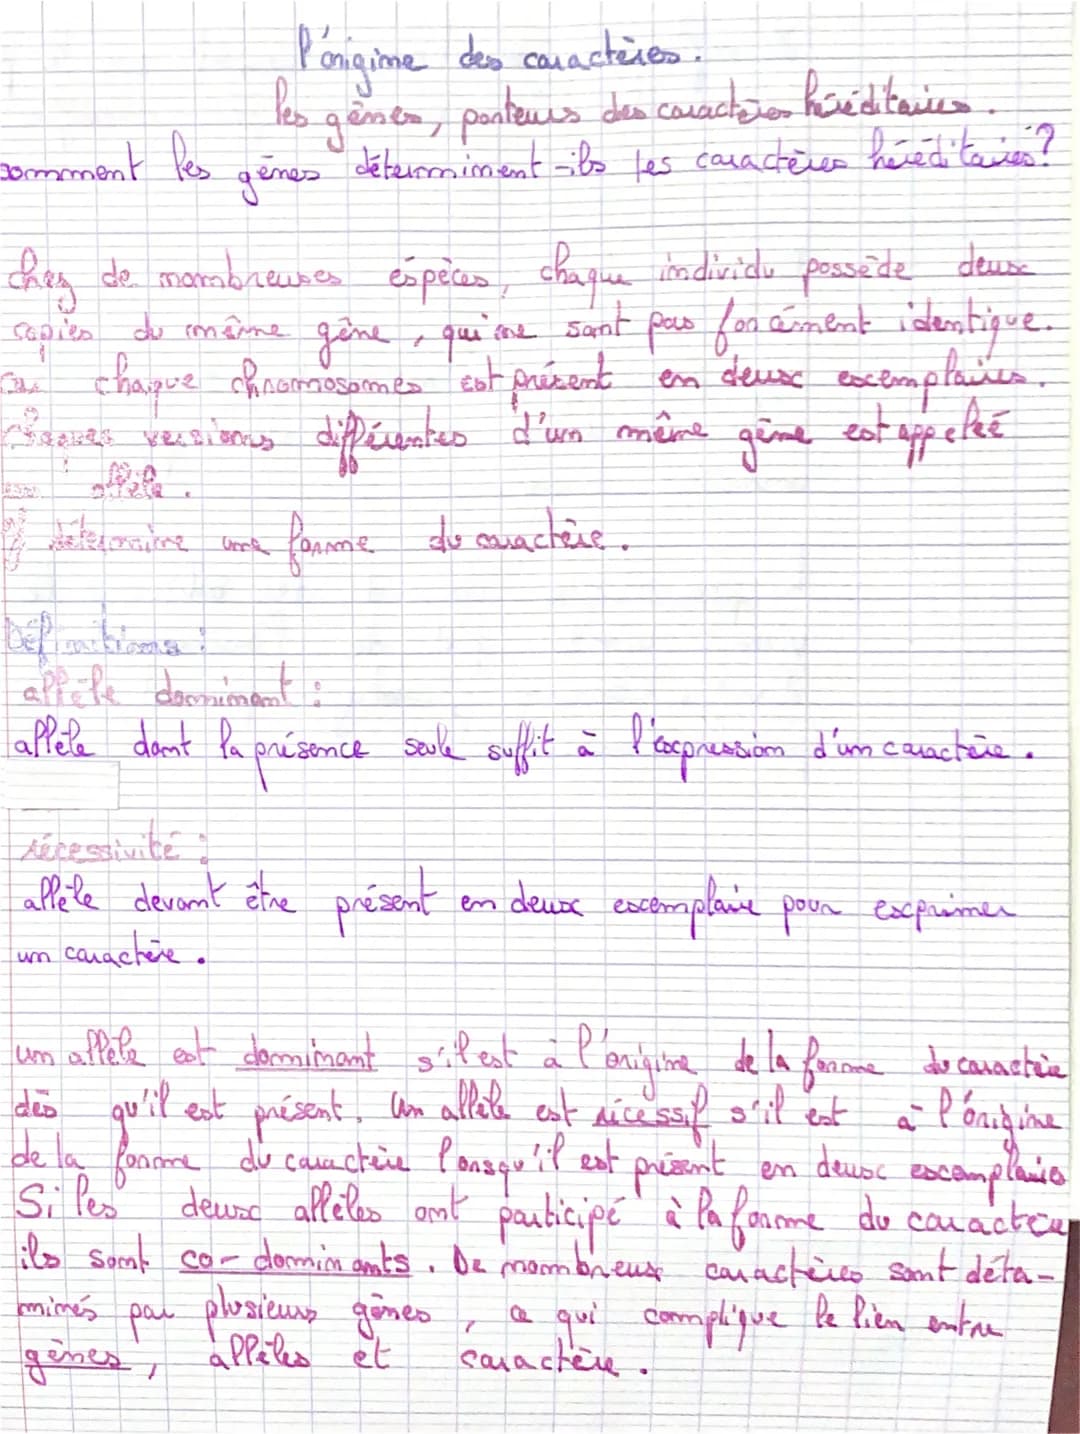 l'origine des caractères.
les gênes, porteurs des caractères héréditaires.
comment les gênes déterminent-ils les caractères héréditaires?
chez de nombreuses espèces, chaque individu possède deux
copies du même gêne, qui ne sont pas forcément identique.
Car chaque chromosomes est présent en deux exemplaires.
Chaques versions différentes d'un même gêne est appelée
allèle.
Il détermine une forme du caractère.
Définitions :
allèle dominant :
allèle dont la présence seule suffit à l'expression d'un caractère.
récessivité :
allèle devant être présent en deux exemplaire pour exprimer
un caractère.
un allèle est dominant s'il est à l'origine de la forme du caractère
dès qu'il est présent. Un allèle est récessif s'il est à l'origine
de la forme du caractère lorsqu'il est présent en deux exemplaires
Si les deux allèles ont participé à la forme du caractère
ils sont co-dominants. De nombreux caractères sont déte-
minés par plusieurs gênes, ce qui complique le lien entre
gênes, allèles et caractère.